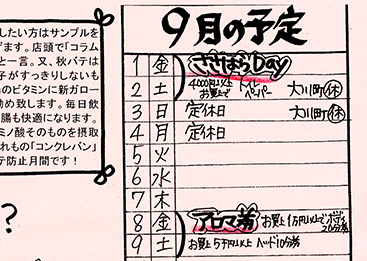 したい方はサンプルを
ます。店頭で「コラム
と一言。又、秋バテは
子がすっきりしないも
のビタミンに新ガロー
勧め致します。毎日飲
腸も快適になります。
ミノ酸そのものを摂取
れもの「コンクレバン」
テ防止月間です!
?
9月の予定
1 金 ささはらDay
2 土 4000円以上お買上で トイレットペーパー 大川町㊡
3 日 定休日 大川町㊡
4 月 定休日
5 火
6 水
7 木
8 金 アロマ券 お買上1万円以上でボディ20分券
9 土 お買上5千円以上ヘッド10分券